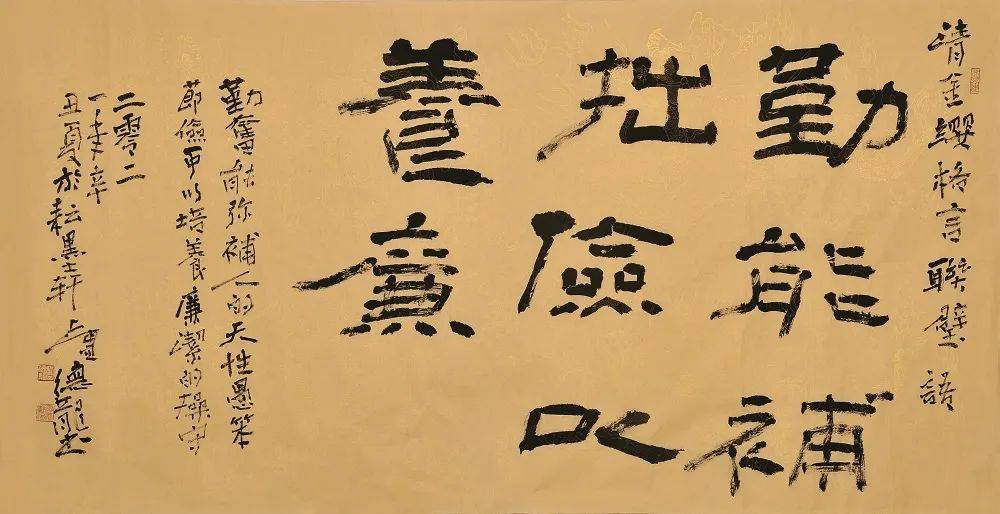 清金纓格言聯璧語
勤能補
拙儉以
養廉
勤奮能弥補人的天性愚笨
節儉可以培養廉潔的操守
二零二
一年辛
丑夏於耘墨軒盧德